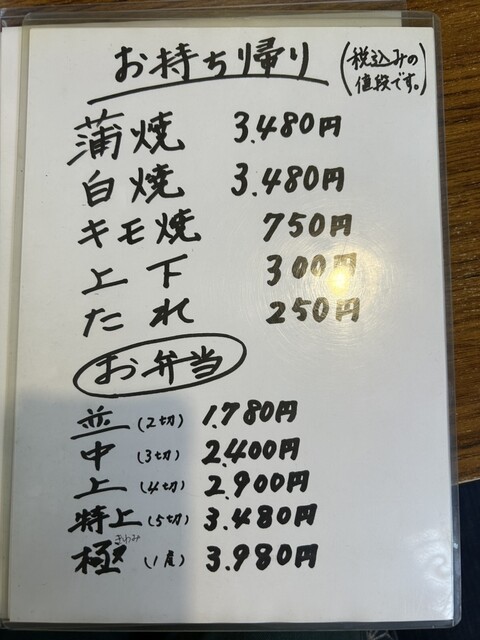 お持ち帰り
(税込みの
値段です。)
蒲焼 3.480円
白焼 3.480円
キモ焼 750円
上下 300円
たれ 250円
お弁当
並(2切) 1.780円
中(3切) 2.400円
上(4切) 2.900円
特上(5切) 3.480円
きわみ
極(1尾) 3.980円